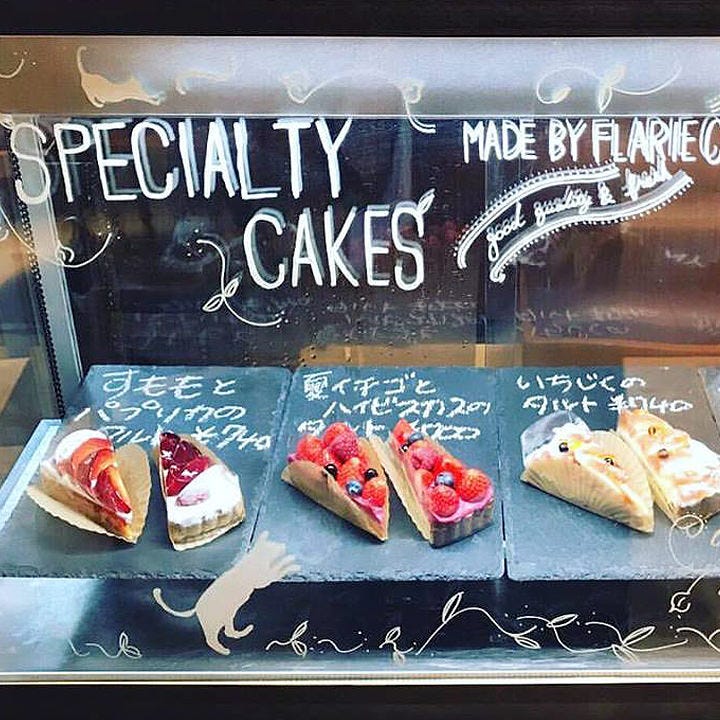 SPECIALTY
CAKES
MADE BY FLARIEC
good quality & fresh
すももと
パプリカの
タルト ¥740
夏イチゴと
ハイビスカスの
タルト
いちじくの
タルト ¥740